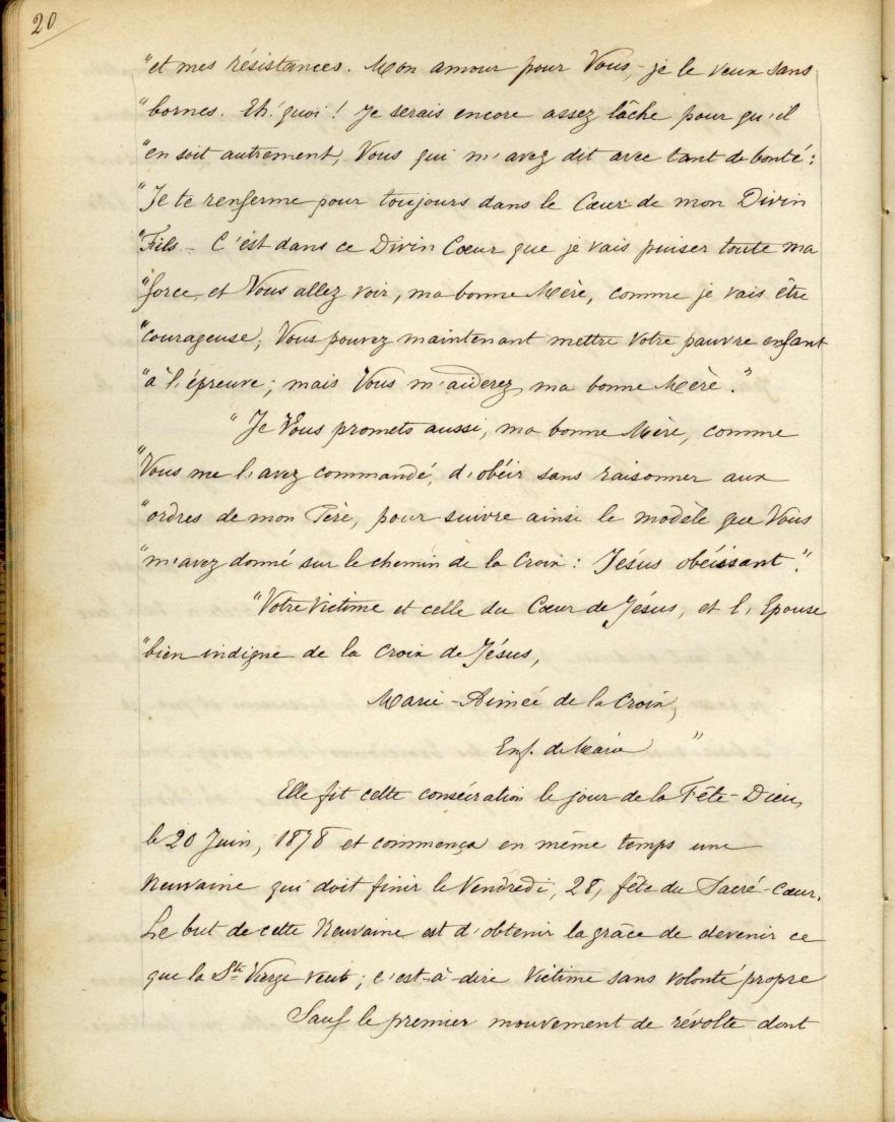 20
"et mes résistances. Mon amour pour Vous, - je le veux sans
"bornes. Eh! quoi! Je serais encore assez lâche pour qu'il
"en soit autrement, Vous qui m'avez dit avec tant de bonté:
"Je te renferme pour toujours dans le Cœur de mon Divin
"Fils - C'est dans ce Divin Cœur que je vais puiser toute ma
"force, et Vous allez voir, ma bonne Mère, comme je vais être
"courageuse; Vous pouvez maintenant mettre votre pauvre enfant
"à l'épreuve; mais Vous m'aiderez, ma bonne Mère."
"Je Vous promets aussi, ma bonne Mère, comme
"Vous me l'avez commandé, d'obéir sans raisonner aux
"ordres de mon Père, pour suivre ainsi le modèle que Vous
"m'avez donné sur le chemin de la Croix: Jésus obéissant."
"Votre Victime et celle du Cœur de Jésus, et l'Epouse
"bien indigne de la Croix de Jésus,
Marie-Aimée de la Croix,
Enf. de Marie "
Elle fit cette consécration le jour de la Fête-Dieu,
le 20 Juin, 1878 et commença en même temps une
Neuvaine qui doit finir le Vendredi, 28, fête du Sacré-Cœur.
Le but de cette Neuvaine est d'obtenir la grâce de devenir ce
que la Ste Vierge veut; c'est-à-dire Victime sans volonté propre
Sauf le premier mouvement de révolte dont